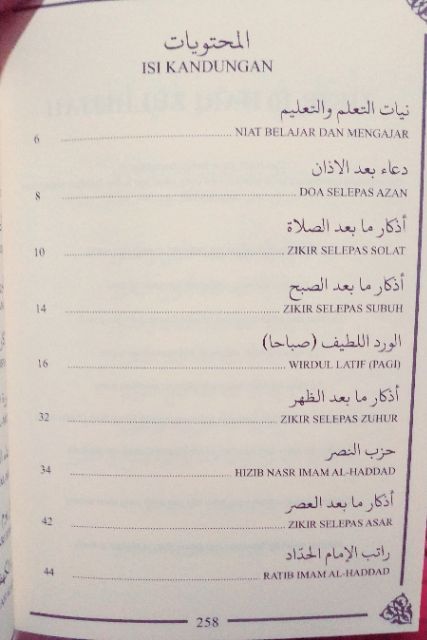 المحتويات
ISI KANDUNGAN
نيات التعلم والتعليم
NIAT BELAJAR DAN MENGAJAR ........ 6
دعاء بعد الاذان
DOA SELEPAS AZAN ........ 8
أذكار ما بعد الصلاة
ZIKIR SELEPAS SOLAT ........ 10
أذكار ما بعد الصبح
ZIKIR SELEPAS SUBUH ........ 14
الورد اللطيف (صباحا)
WIRDUL LATIF (PAGI) ........ 16
أذكار ما بعد الظهر
ZIKIR SELEPAS ZUHUR ........ 32
حزب النصر
HIZIB NASR IMAM AL-HADDAD ........ 34
أذكار ما بعد العصر
ZIKIR SELEPAS ASAR ........ 42
راتب الإمام الحدّاد
RATIB IMAM AL-HADDAD ........ 44
258